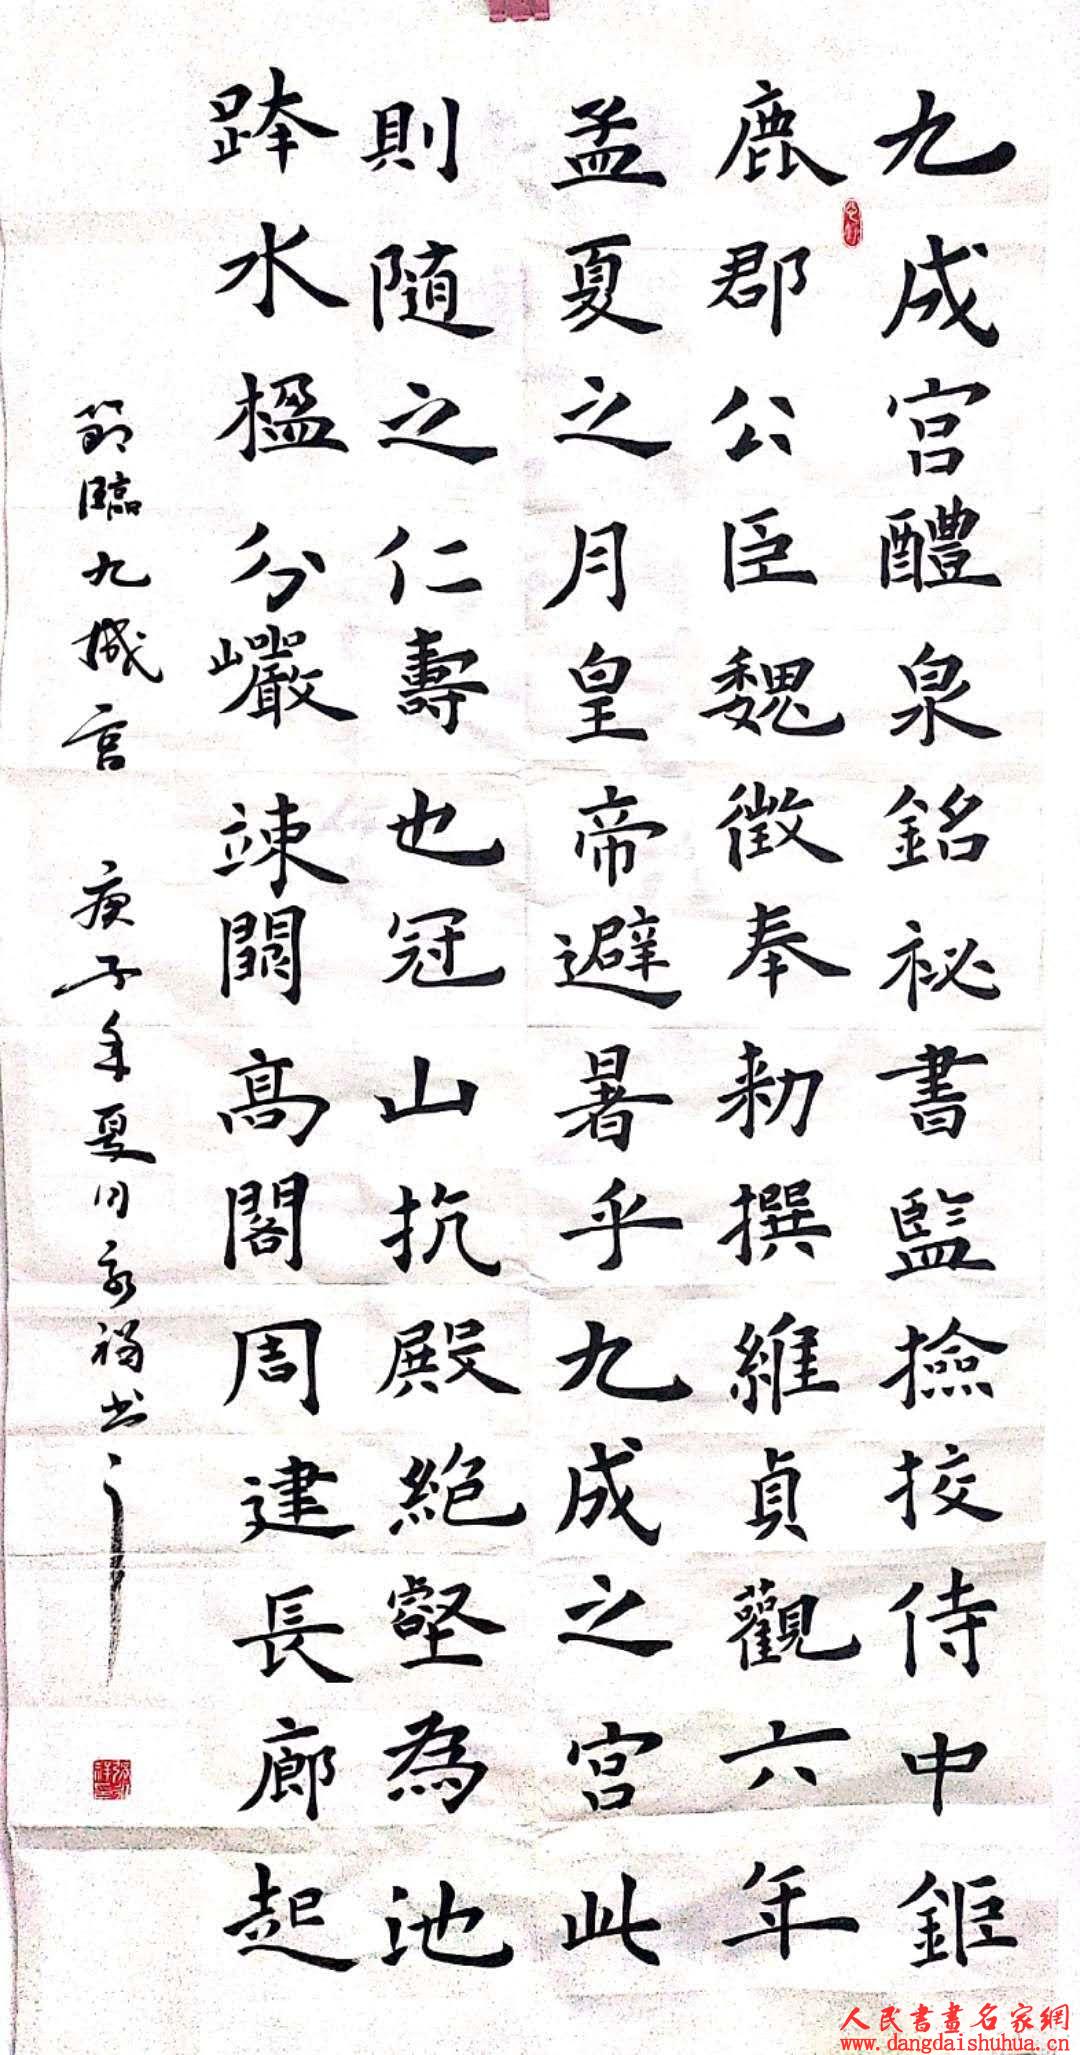 九成宫醴泉銘祕書監撿挍侍中鉅
鹿郡公臣魏徵奉勑撰維貞觀六年
孟夏之月皇帝避暑乎九成之宫此
則随之仁壽也冠山抗殿絶壑為池
跨水楹分巖竦闕高閣周建長廊起
節臨九城宫 庚子年夏月 福书
人民書畫名家網
www.dangdaishuhua.cn